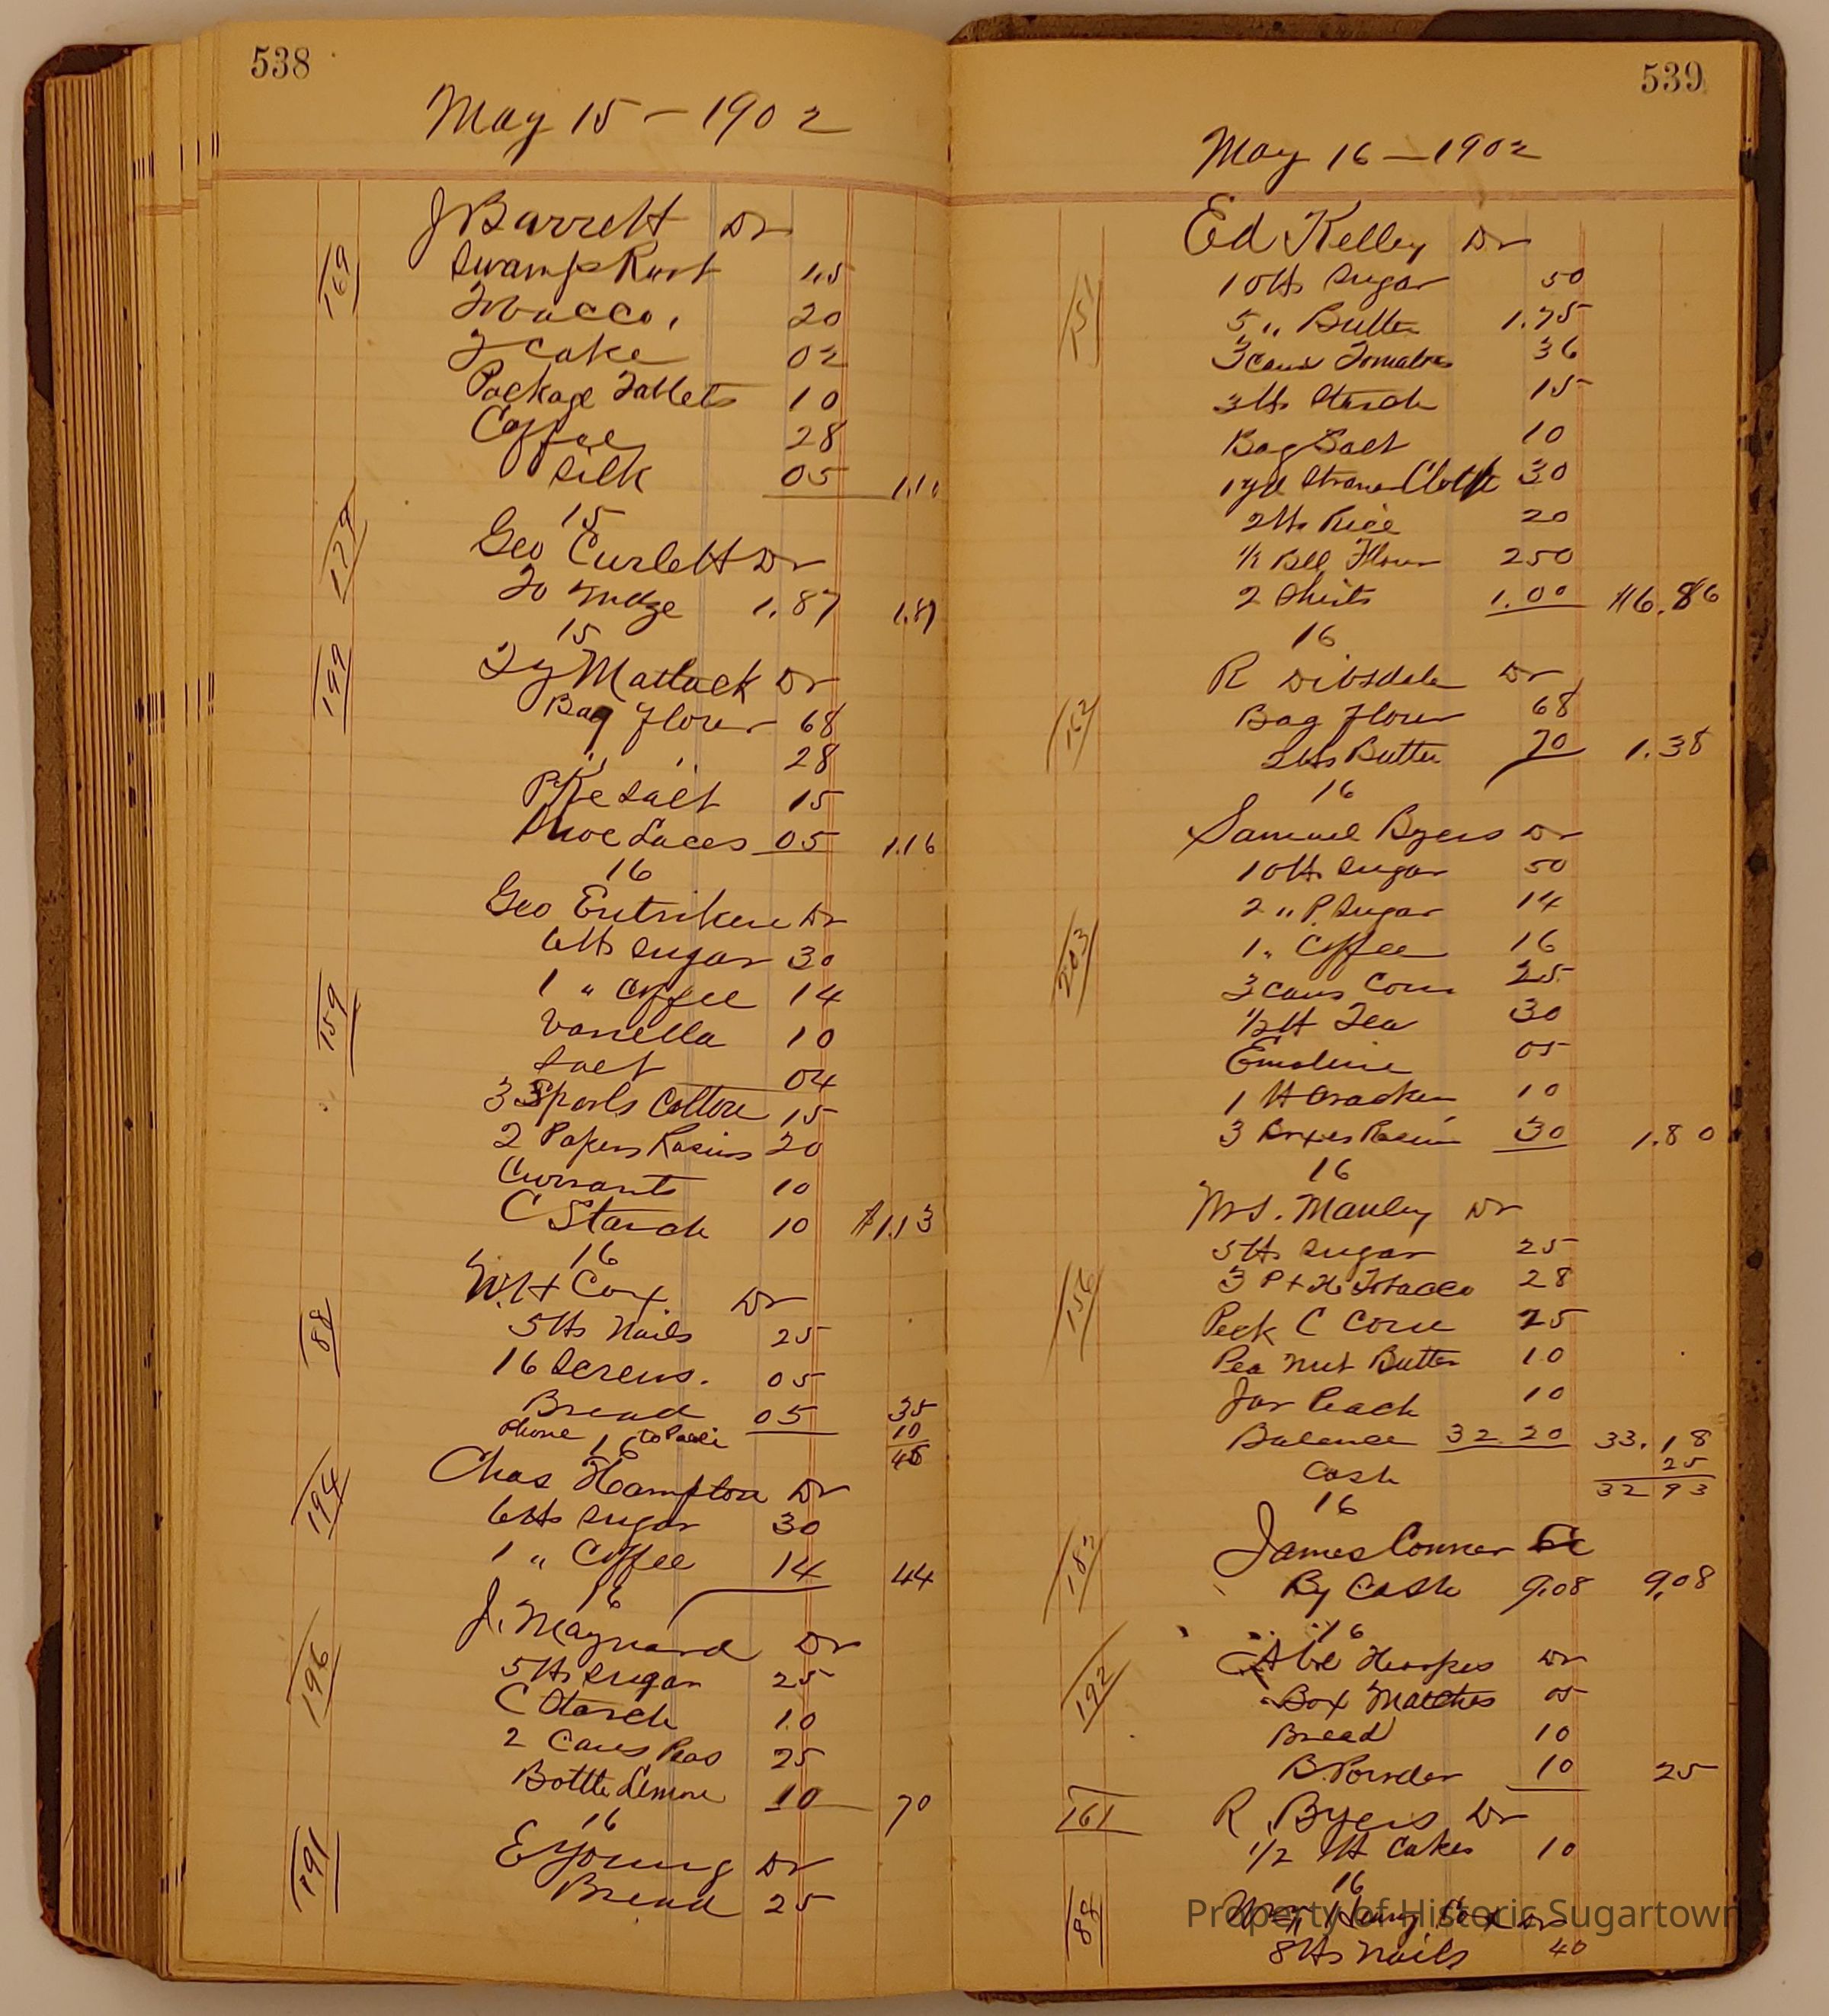 538
May 15 - 1902
J Barrett Dr
169
Swamp Root 1.5
Tobacco, 20
Y Cake 02
Package Tablets 10
Coffee 28
Silk 05 1.10
15
179
Geo Curlett Dr
To Mdze 1.87 1.87
15
199
Ty Matlack Dr
Bag Flour 68
" " 28
Pke Salt 15
Shoe Laces 05 1.16
16
Geo Entriken Dr
159
6 lbs Sugar 30
1 " Coffee 14
Vanella 10
Salt 04
3 Spools Cotton 15
2 Papers Rasins 20
Currants 10
C Starch 10 $1.13
16
88
W.H Cox. Dr
5 lbs Nails 25
16 Screws. 05
Bread 05 35
Phone to Paoli 10
16 45
194
Chas Hampton Dr
6 lbs Sugar 30
1 " Coffee 14 44
16
196
J. Maynard Dr
5 lbs Sugar 25
C Starch 10
2 Cans Peas 25
Bottle Lemon 10 70
16
191
E Young Dr
Bread 25
539
May 16 - 1902
Ed Kelley Dr
151
10 lbs Sugar 50
5 " Butter 1.75
3 cans Tomatoes 36
3 lbs Starch 15
Bag Salt 10
1 yd Cloth 30
2 lbs Rice 20
1/2 Bbl Flour 250
2 Shirts 1.00 $6.86
16
R Dibsdale Dr
152
Bag Flour 68
2 lbs Butter 70 1.38
16
Samuel Byers Dr
203
10 lb Sugar 50
2 " P. Sugar 14
1 " Coffee 16
3 cans Corn 25
1/2 lb Tea 30
Emoline 05
1 lb Cracken 10
3 Boxes Rasin 30 1.80
16
Mrs. Manley Dr
156
5 lbs Sugar 25
3 P + H Tobacco 28
Peck C Corn 25
Pea Nut Butter 10
Jar Peach 10
Balance 32.20 33.18
Cash 25
16 32 93
182
James Conner Cr
By Cash 9.08 9.08
16
192
Abe Hoopes Dr
Box Matches 05
Bread 10
B. Powder 10 25
161
R. Byers Dr
1/2 lb Cakes 10
16
88
Wm Henry Cox Dr
8 lbs Nails 40
Property of Historic Sugartown